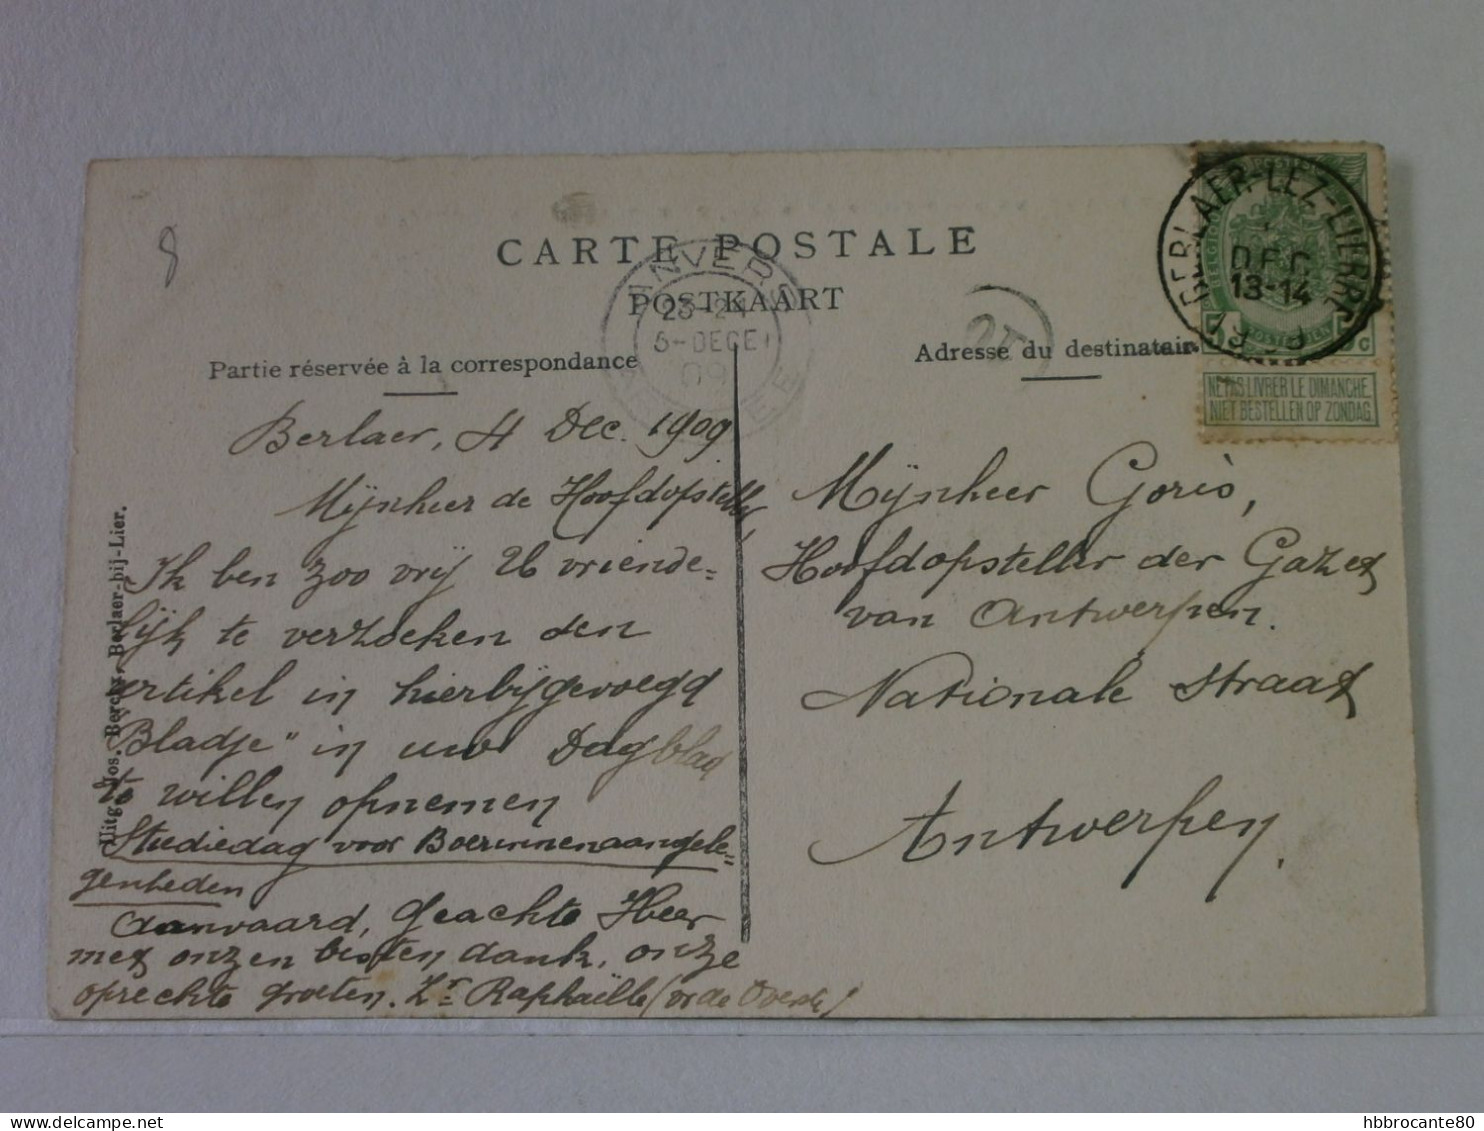 8
CARTE POSTALE
POSTKAART
Partie réservée à la correspondance
Adresse du destinataire
ANVERS
6-DECE
09
2T
BERLAER-LEZ-LIERRE
DEC
13-14
NE PAS LIVRER LE DIMANCHE
NIET BESTELLEN OP ZONDAG
Berlaer, 4 Dec. 1909
Mijnheer de Hoofdopsteller,
Ik ben zoo vrij U vriende=
lijk te verzoeken den
artikel in hierbijgevoegd
"Bladje" in uw Dagblad
te willen opnemen
Studiedag voor Boerinnenaangele=
genheden
Aanvaard, Geachte Heer
met onzen besten dank, onze
oprechte groeten. Zr Raphaëlle (vr de Overste)
Mijnheer Goris,
Hoofdopsteller der Gazet
van Antwerpen.
Nationale Straat
Antwerpen.
Uitg. Jos. Berckx, Berlaer-bij-Lier.
hbbrocante80